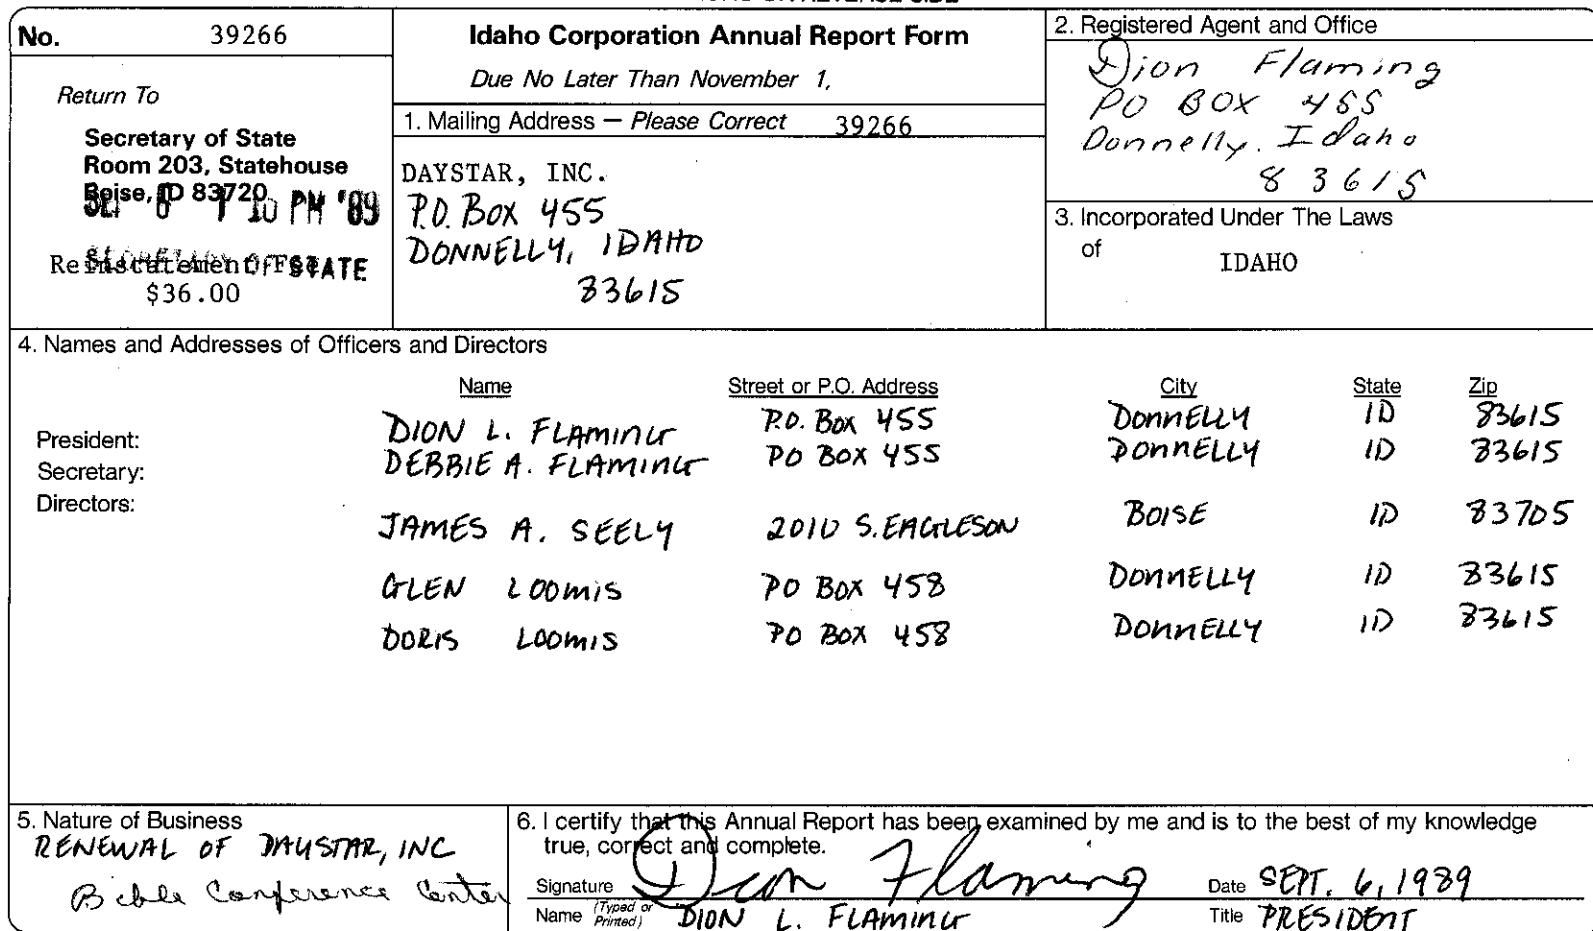 No. 39266
Return To
Secretary of State
Room 203, Statehouse
Boise, ID 83720
SEP 6 1 10 PM '89
SECRETARY OF STATE
Reinstatement Fee
$36.00
Idaho Corporation Annual Report Form
Due No Later Than November 1,
1. Mailing Address — Please Correct 39266
DAYSTAR, INC.
P.O. BOX 455
DONNELLY, IDAHO
83615
2. Registered Agent and Office
Dion Flaming
PO BOX 455
Donnelly. Idaho
83615
3. Incorporated Under The Laws
of IDAHO
4. Names and Addresses of Officers and Directors
Name Street or P.O. Address City State Zip
President: DION L. FLAMING P.O. Box 455 DONNELLY ID 83615
Secretary: DEBBIE A. FLAMING PO BOX 455 DONNELLY ID 83615
Directors:
JAMES A. SEELY 2010 S. EAGLESON BOISE ID 83705
GLEN LOOMIS PO BOX 458 DONNELLY ID 83615
DORIS LOOMIS PO BOX 458 DONNELLY ID 83615
5. Nature of Business
RENEWAL OF DAYSTAR, INC
Bible Conference Center
6. I certify that this Annual Report has been examined by me and is to the best of my knowledge
true, correct and complete.
Signature Dion Flaming Date SEPT. 6, 1989
Name (Typed or Printed) DION L. FLAMING Title PRESIDENT